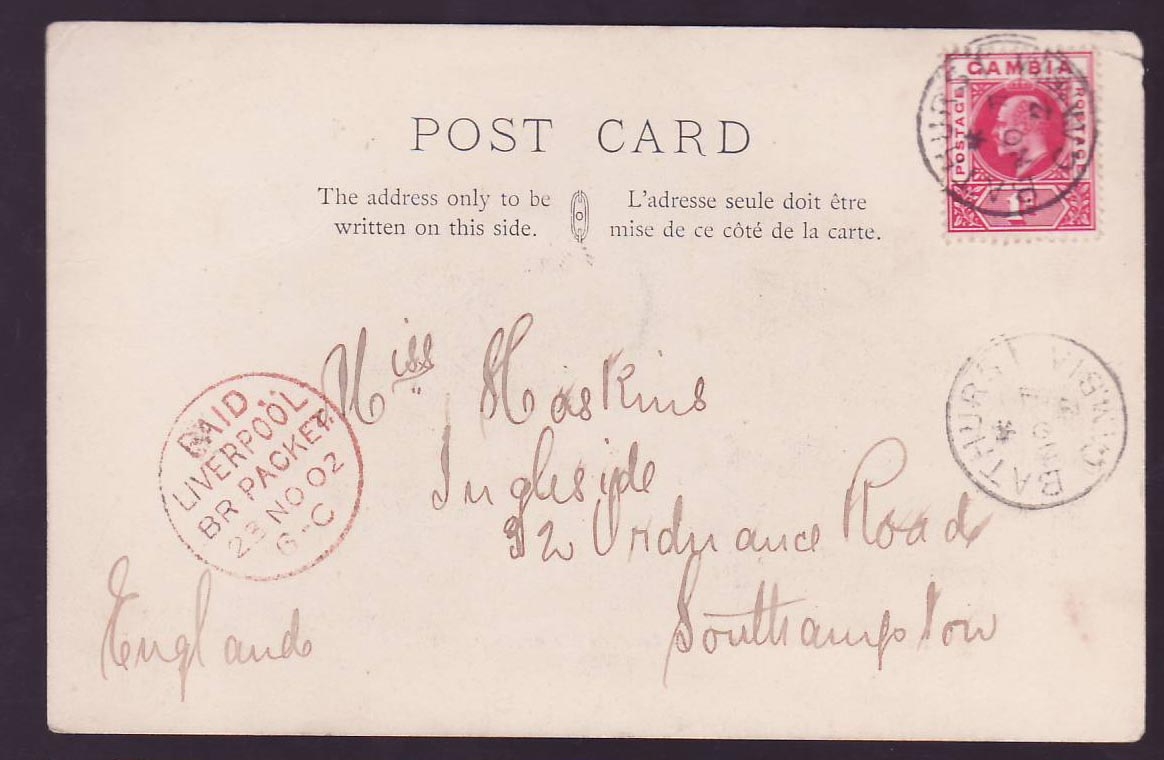 POST CARD
The address only to be
written on this side.
L'adresse seule doit être
mise de ce côté de la carte.
GAMBIA
POSTAGE
POSTAGE
1
BATHURST
GAMBIA
NO
2
Miss Hoskins
Ingleside
32 Ordnance Road
Southampton
England
PAID
LIVERPOOL
BR PACKET
23 NO 02
6-C
BATHURST
GAMBIA
NO